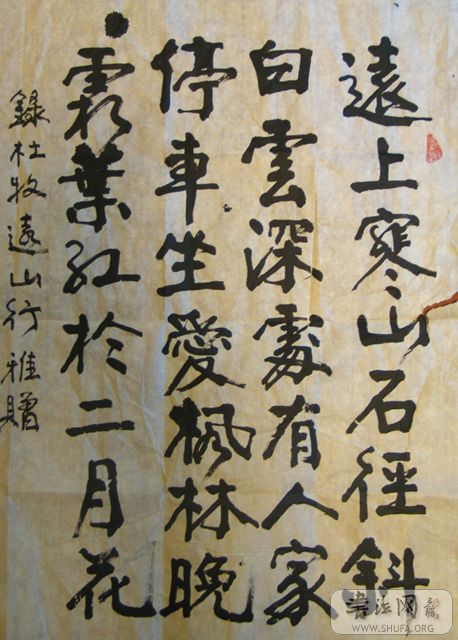 遠上寒山石徑斜
白雲深處有人家
停車坐愛楓林晚
霜葉紅於二月花
錄杜牧遠山行 雅贈
書法网
WWW.SHUFA.ORG